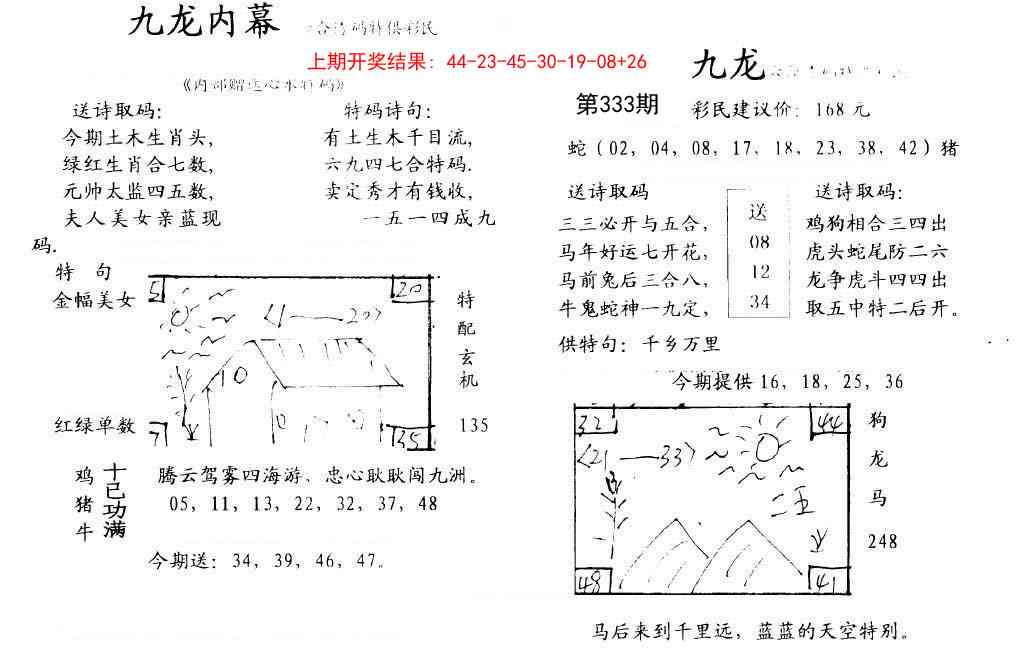 九龙内幕
上期开奖结果：44-23-45-30-19-08+26
送诗取码：
今期土木生肖头，
绿红生肖合七数，
元帅太监四五数，
夫人美女亲蓝现
码.
特码诗句：
有土生木千目流，
六九四七合特码.
卖定秀才有钱收，
一五一四成九
特 句
金幅美女
红绿单数
20
〈1——20〉
10
35
特
配
玄
机
135
鸡
猪
牛
十已功满
腾云驾雾四海游、忠心耿耿闯九洲。
05，11，13，22，32，37，48
今期送：34，39，46，47。
九龙
第333期
彩民建议价：168元
蛇（02，04，08，17，18，23，38，42）猪
送诗取码
三三必开与五合，
马年好运七开花，
马前兔后三合八，
牛鬼蛇神一九定，
送
08
12
34
送诗取码：
鸡狗相合三四出
虎头蛇尾防二六
龙争虎斗四四出
取五中特二后开。
供特句：千乡万里
今期提供16，18，25，36
32
44
〈21——33〉
48
41
狗
龙
马
248
马后来到千里远，蓝蓝的天空特别。